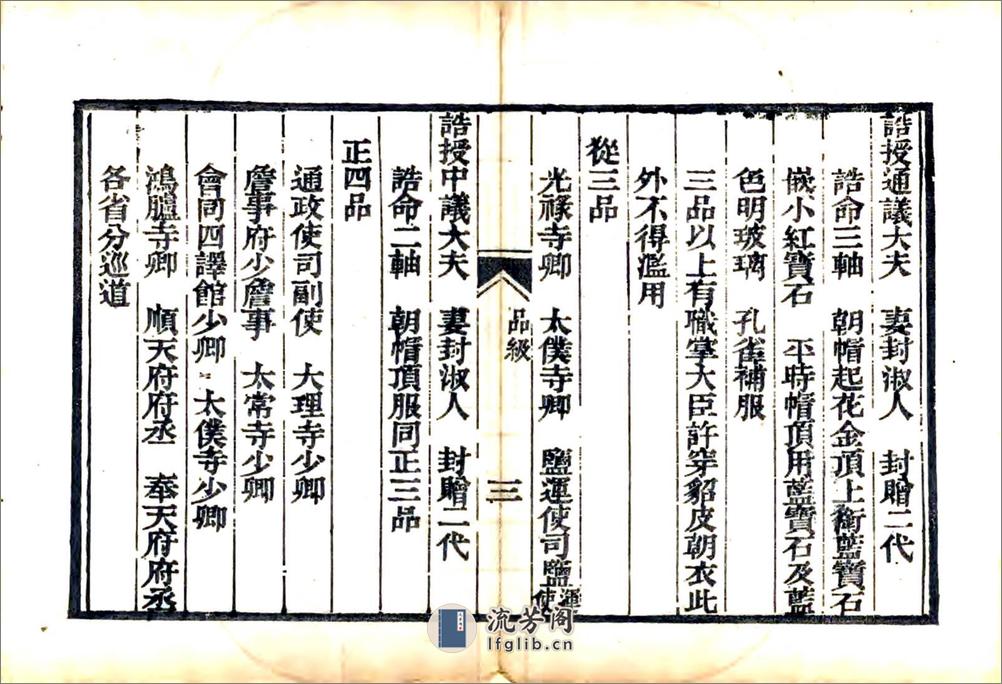 誥授通議大夫　妻封淑人　封贈二代
誥命三軸　朝帽起花金頂上銜藍寶石
嵌小紅寶石　平時帽頂用藍寶石及藍
色明玻璃　孔雀補服
三品以上有職掌大臣許穿貂皮朝衣此
外不得濫用
從三品
光祿寺卿　太僕寺卿　鹽運使司鹽運使
品級　三
誥授中議大夫　妻封淑人　封贈二代
誥命二軸　朝帽頂服同正三品
正四品
通政使司副使　大理寺少卿
詹事府少詹事　太常寺少卿
會同四譯館少卿　太僕寺少卿
鴻臚寺卿　順天府府丞　奉天府府丞
各省分巡道
流芳閣
lfglib.cn